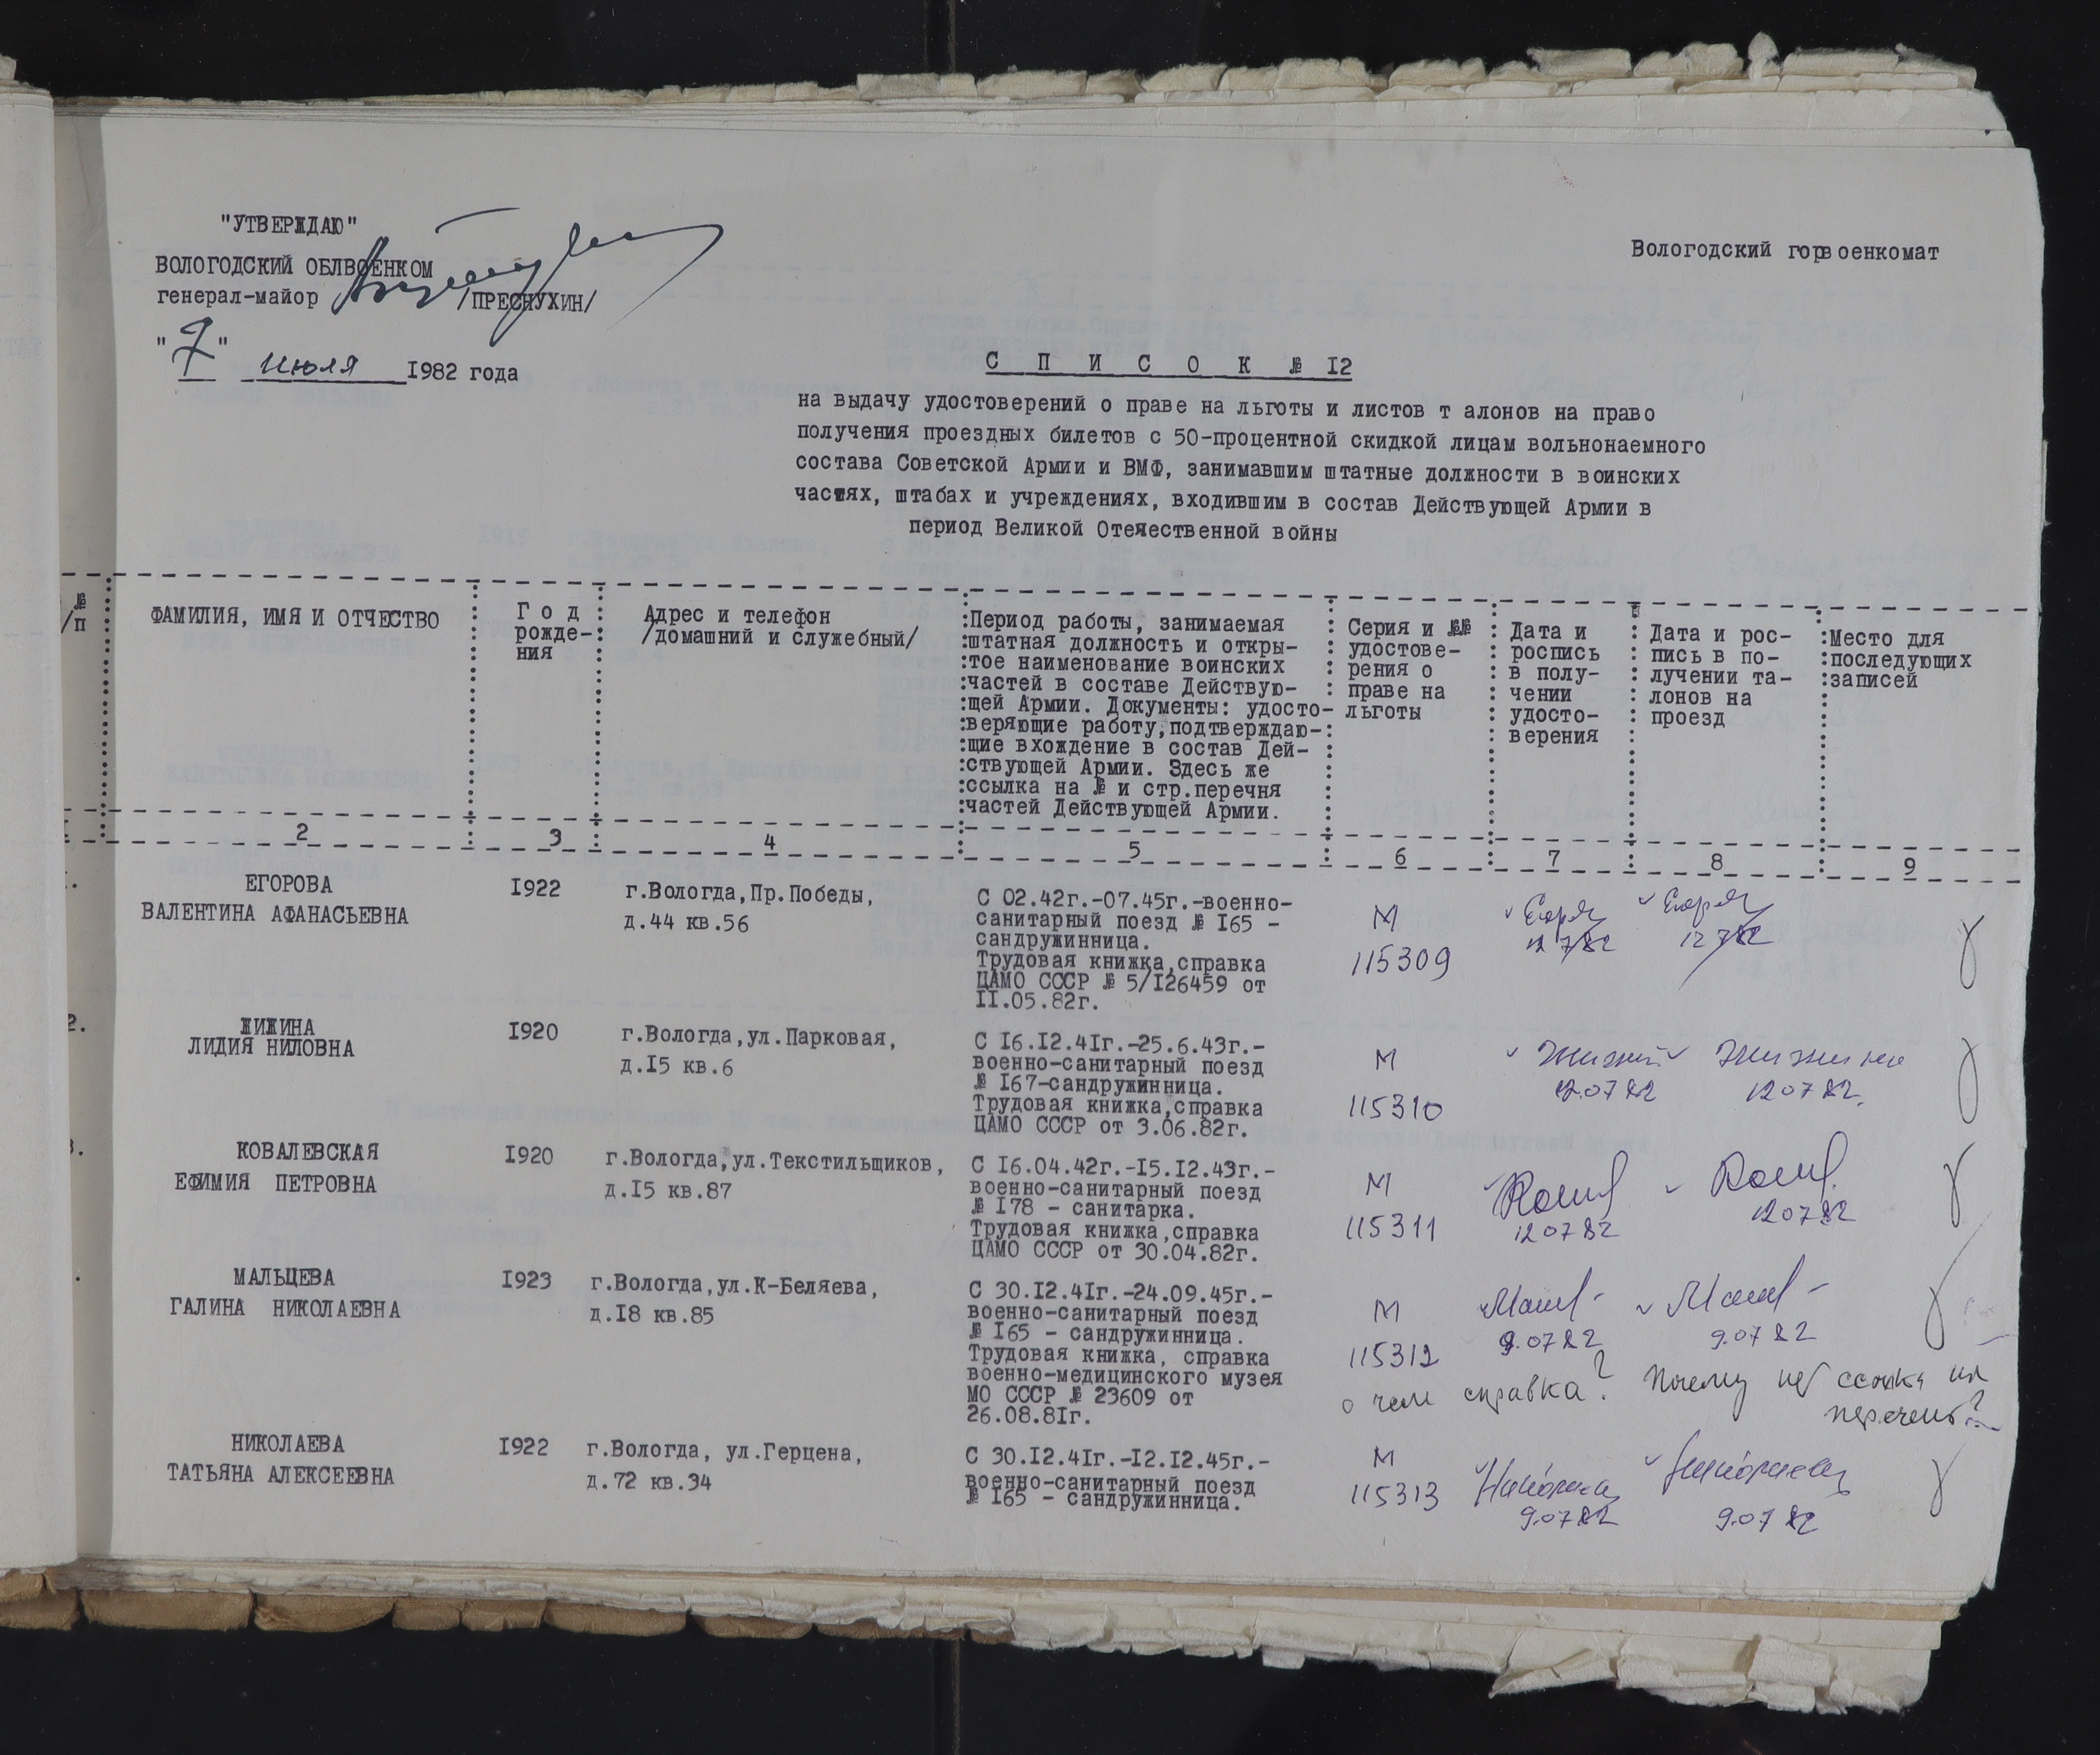 "УТВЕРЖДАЮ"
ВОЛОГОДСКИЙ ОБЛВОЕНКОМ
генерал-майор /ПРЕСНУХИН/
"7" июля 1982 года
Вологодский горвоенкомат
С П И С О К № I2
на выдачу удостоверений о праве на льготы и листов т алонов на право
получения проездных билетов с 50-процентной скидкой лицам вольнонаемного
состава Советской Армии и ВМФ, занимавшим штатные должности в воинских
частях, штабах и учреждениях, входившим в состав Действующей Армии в
период Великой Отечественной войны
№
/п
ФАМИЛИЯ, ИМЯ И ОТЧЕСТВО
Г о д
рожде-
ния
Адрес и телефон
/домашний и служебный/
Период работы, занимаемая
штатная должность и откры-
тое наименование воинских
частей в составе Действую-
щей Армии. Документы: удосто-
веряющие работу,подтверждаю-
щие вхождение в состав Дей-
ствующей Армии. Здесь же
ссылка на № и стр.перечня
частей Действующей Армии.
Серия и №№
удостове-
рения о
праве на
льготы
Дата и
роспись
в полу-
чении
удосто-
верения
Дата и рос-
пись в по-
лучении та-
лонов на
проезд
Место для
последующих
записей
2 3 4 5 6 7 8 9
ЕГОРОВА
ВАЛЕНТИНА АФАНАСЬЕВНА
I922
г.Вологда,Пр.Победы,
д.44 кв.56
С 02.42г.-07.45г.-военно-
санитарный поезд № I65 -
сандружинница.
Трудовая книжка,справка
ЦАМО СССР № 5/I26459 от
II.05.82г.
М
115309
12 7 82
12 7 82
2.
ЖИЖИНА
ЛИДИЯ НИЛОВНА
I920
г.Вологда,ул.Парковая,
д.I5 кв.6
С I6.I2.4Iг.-25.6.43г.-
военно-санитарный поезд
№ I67-сандружинница.
Трудовая книжка,справка
ЦАМО СССР от 3.06.82г.
М
115310
12.07 82
Жижина
12 07 82.
3.
КОВАЛЕВСКАЯ
ЕФИМИЯ ПЕТРОВНА
I920
г.Вологда,ул.Текстильщиков,
д.I5 кв.87
С I6.04.42г.-I5.I2.43г.-
военно-санитарный поезд
№ I78 - санитарка.
Трудовая книжка,справка
ЦАМО СССР от 30.04.82г.
М
115311
12 07 82
12 07 82
МАЛЬЦЕВА
ГАЛИНА НИКОЛАЕВНА
I923
г.Вологда,ул.К-Беляева,
д.I8 кв.85
С 30.I2.4Iг.-24.09.45г.-
военно-санитарный поезд
№ I65 - сандружинница.
Трудовая книжка, справка
военно-медицинского музея
МО СССР № 23609 от
26.08.8Iг.
М
115312
9.07 82
9.07 82
о чем справка? Почему нет ссылки на
перечень?
НИКОЛАЕВА
ТАТЬЯНА АЛЕКСЕЕВНА
I922
г.Вологда, ул.Герцена,
д.72 кв.34
С 30.I2.4Iг.-I2.I2.45г.-
военно-санитарный поезд
№ I65 - сандружинница.
М
115313
9.07 82
9.07 82